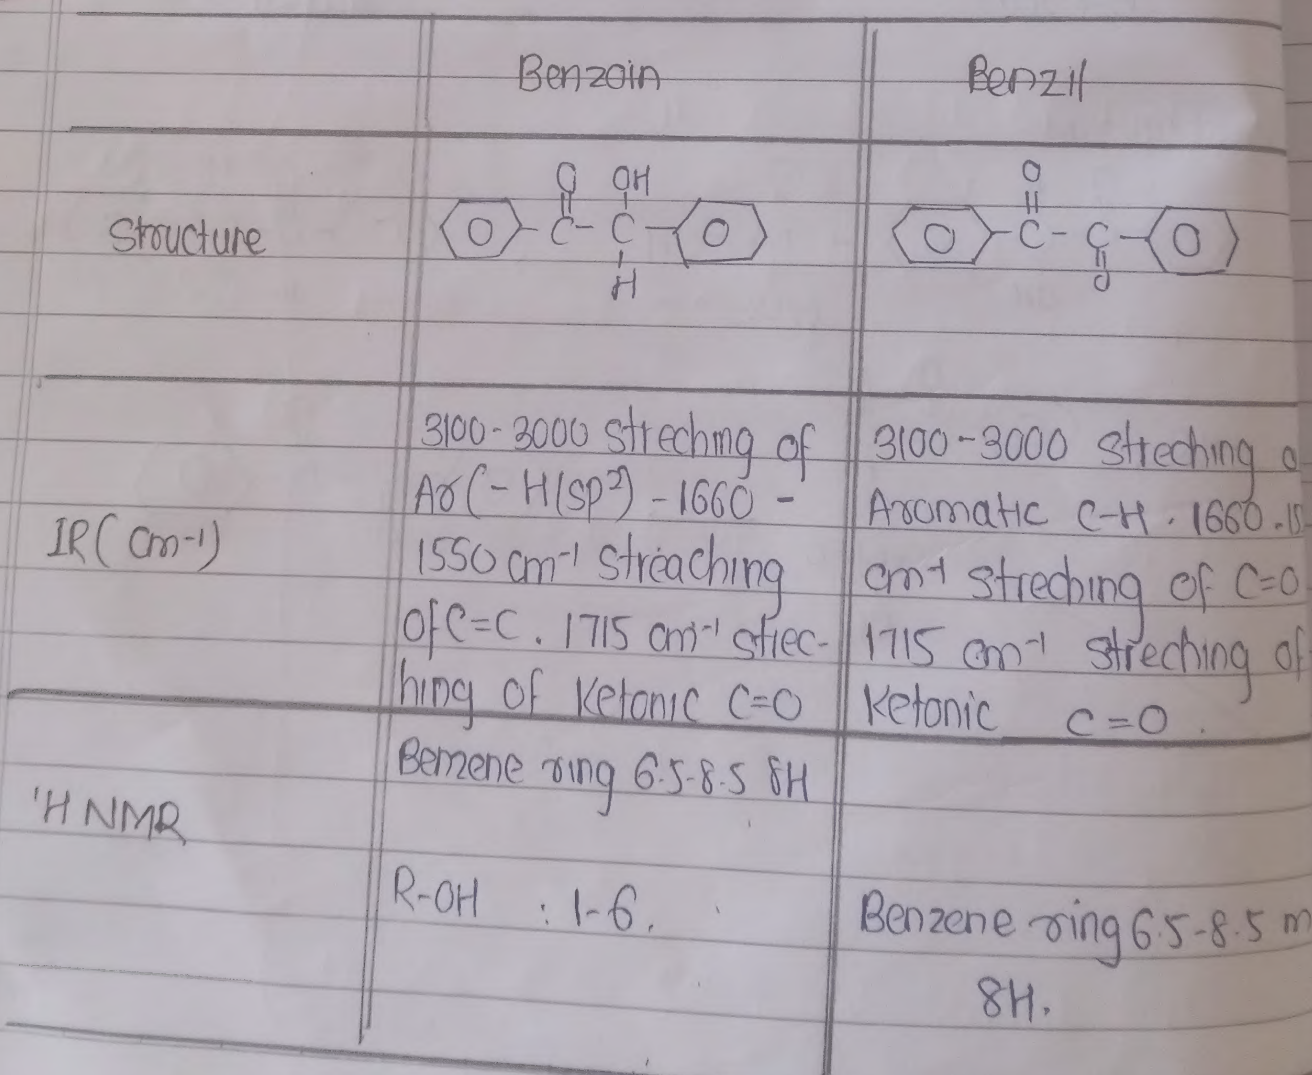 Benzoin Benzil
Structure
O OH
C - C -
H
O
C - C
O
IR (cm-1)
3100-3000 streching of
Ar C-H(sp²) - 1660 -
1550 cm-1 streaching
of C=C. 1715 cm-1 strec-
hing of Ketonic C=O
3100-3000 streching
Aromatic C-H. 1660.
cm-1 streching of C=O
1715 cm-1 streching of
Ketonic C=O.
'H NMR
Benzene ring 6.5-8.5 8H
R-OH : 1-6.
Benzene ring 6.5-8.5 m
8H.